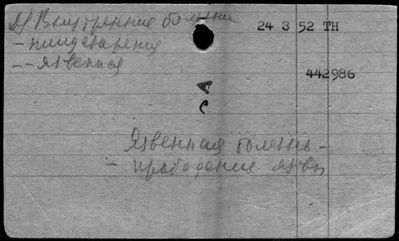 Внутренние болезни
24 3 52 TH
— пищеварения
— — язвенная
442986
Язвенная болезнь —
— прободение язвы